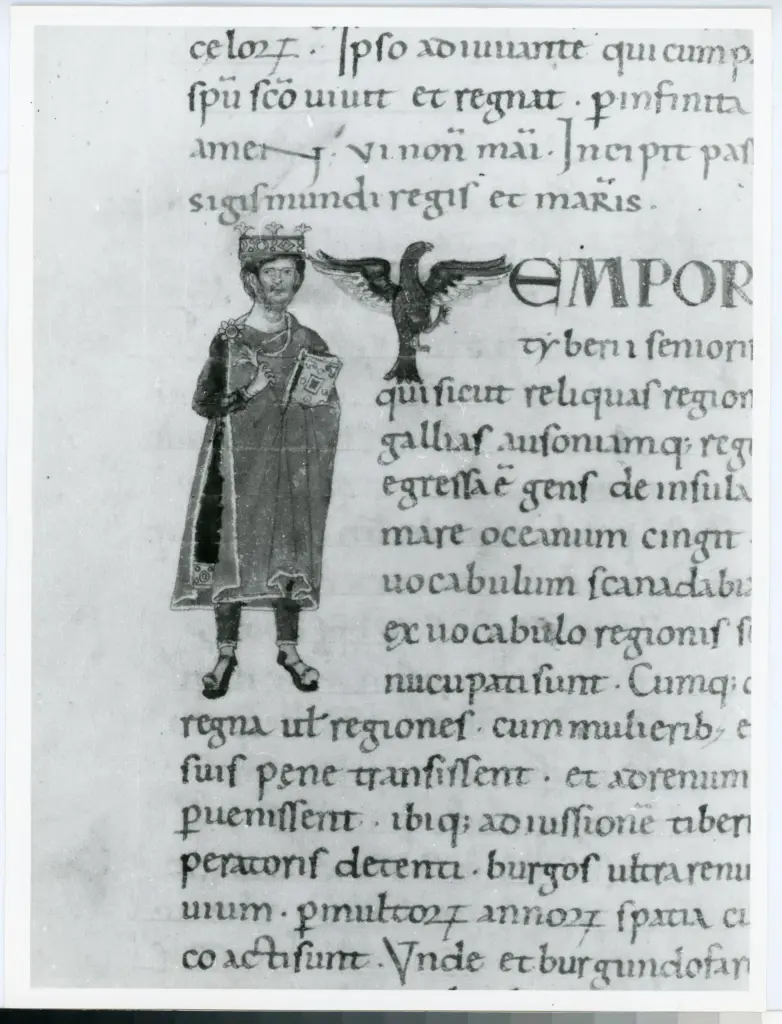 celoꝝ. Ipso adiuuante qui cum p
spū scō uiuit et regnat. ꝑ infinita
amen. vi noñ mai. Incipit pas
sigismundi regis et maRis.
EMPOR
tyberii seniori
qui sicut reliquas region
gallias ausoniamq; reg
egressa ē gens de insula
mare oceanum cingit
uocabulum scanadabi
ex uocabulo regionis s
nucupati sunt. Cumq; c
regna ul regiones. cum mulierib; e
suis pene transissent. et ad renum
ꝑuenissent. ibiq; ad iussionē tiberi
peratoris detenti. burgos ultra renu
uium. ꝑ multoꝝ annoꝝ spatia ci
coacti sunt. Vnde et burgundofar